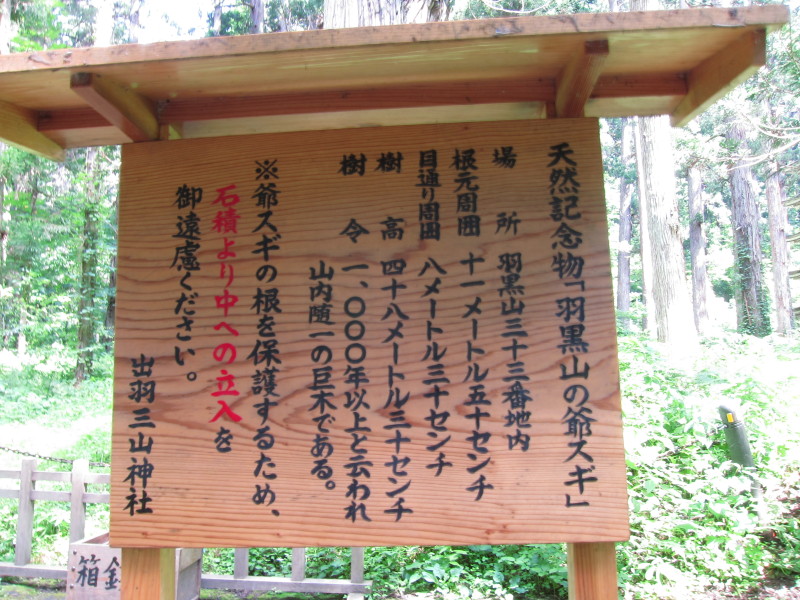 天然記念物「羽黒山の爺スギ」
場所 羽黒山三十三番地内
根元周囲 十一メートル五十センチ
目通り周囲 八メートル三十センチ
樹高 四十八メートル三十センチ
樹令 一、〇〇〇年以上と云われ
山内随一の巨木である。
※爺スギの根を保護するため、
石積より中への立入を
御遠慮ください。
出羽三山神社
箱